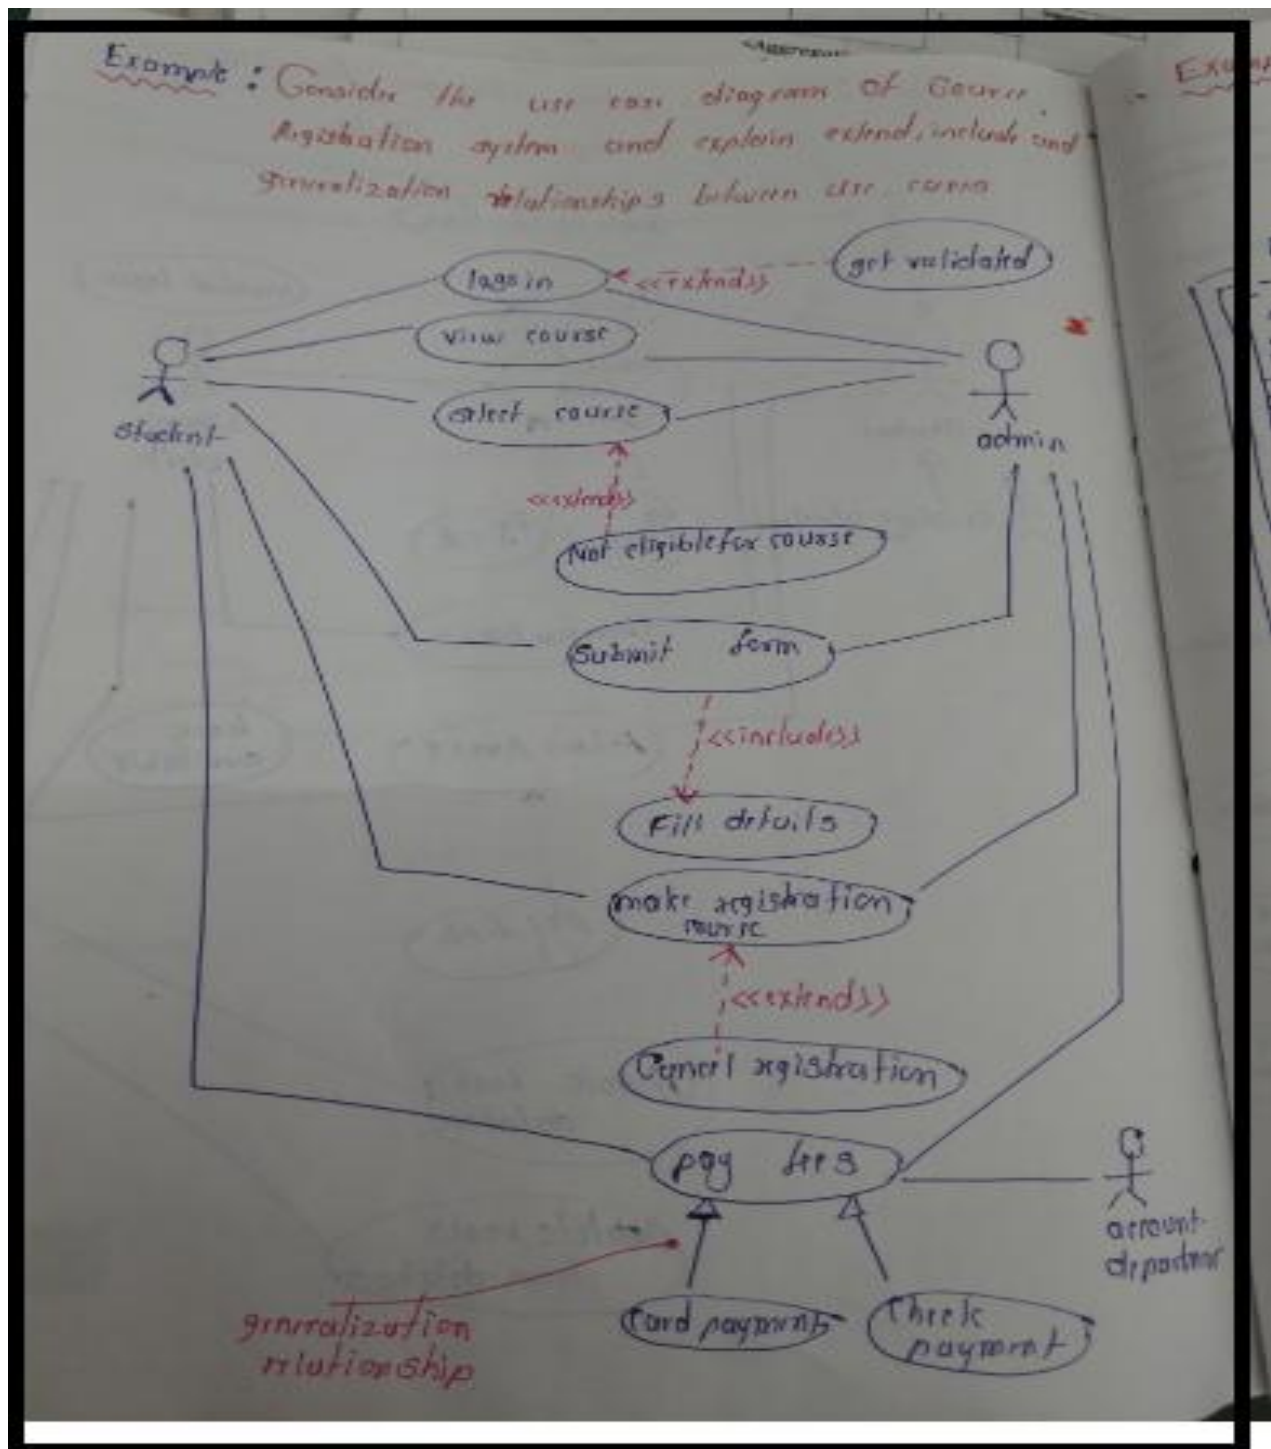 Example : Consider the use case diagram of Course
Registration system and explain extend, include and
generalization relationships between use cases
Exam
login
<<extend>>
get validated
view course
select course
student
admin
<<extend>>
Not eligible for course
Submit form
<<include>>
Fill details
make registration
course
<<extend>>
Cancel registration
pay fees
account
generalization
relationship
Card payment
Check
payment